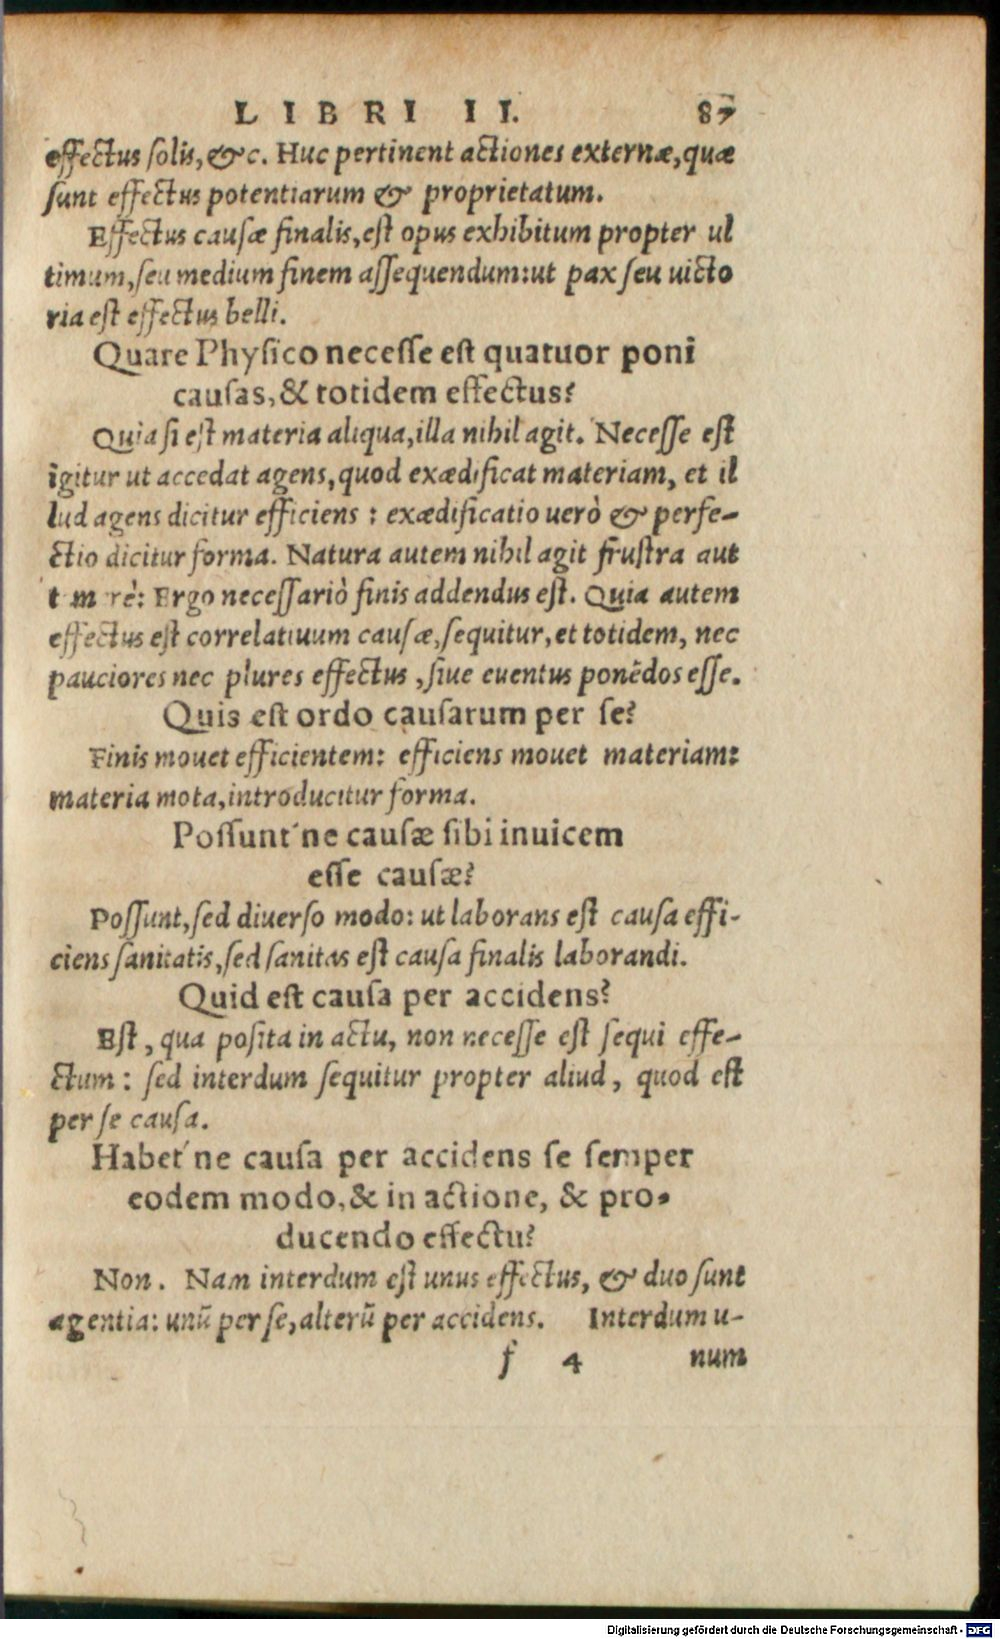 LIBRI II. 87
effectus solis, &c. Huc pertinent actiones externæ, quæ
sunt effectus potentiarum & proprietatum.
Effectus causæ finalis, est opus exhibitum propter ul
timum, seu medium finem assequendum: ut pax seu uicto
ria est effectus belli.
Quare Physico necesse est quatuor poni
causas, & totidem effectus?
Quia si est materia aliqua, illa nihil agit. Necesse est
igitur ut accedat agens, quod exædificat materiam, et il
lud agens dicitur efficiens : exædificatio uerò & perfe-
ctio dicitur forma. Natura autem nihil agit frustra aut
Ergo necessariò finis addendus est. Quia autem
effectus est correlatiuum causæ, sequitur, et totidem, nec
pauciores nec plures effectus, siue euentus ponẽdos esse.
Quis est ordo causarum per se?
Finis mouet efficientem: efficiens mouet materiam:
materia mota, introducitur forma.
Possunt'ne causæ sibi inuicem
esse causæ?
Possunt, sed diuerso modo: ut laborans est causa effi-
ciens sanitatis, sed sanitas est causa finalis laborandi.
Quid est causa per accidens?
Est, qua posita in actu, non necesse est sequi effe-
ctum : sed interdum sequitur propter aliud, quod est
per se causa.
Habet'ne causa per accidens se semper
eodem modo, & in actione, & pro-
ducendo effectu?
Non. Nam interdum est unus effectus, & duo sunt
agentia: unũ per se, alterũ per accidens. Interdum u-
f 4 num
Digitalisierung gefördert durch die Deutsche Forschungsgemeinschaft - DFG